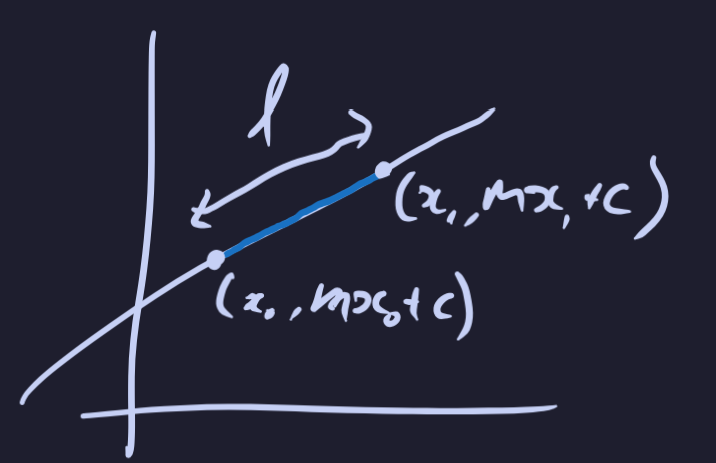 l
(x₁, mx₁+c)
(x₀, mx₀+c)